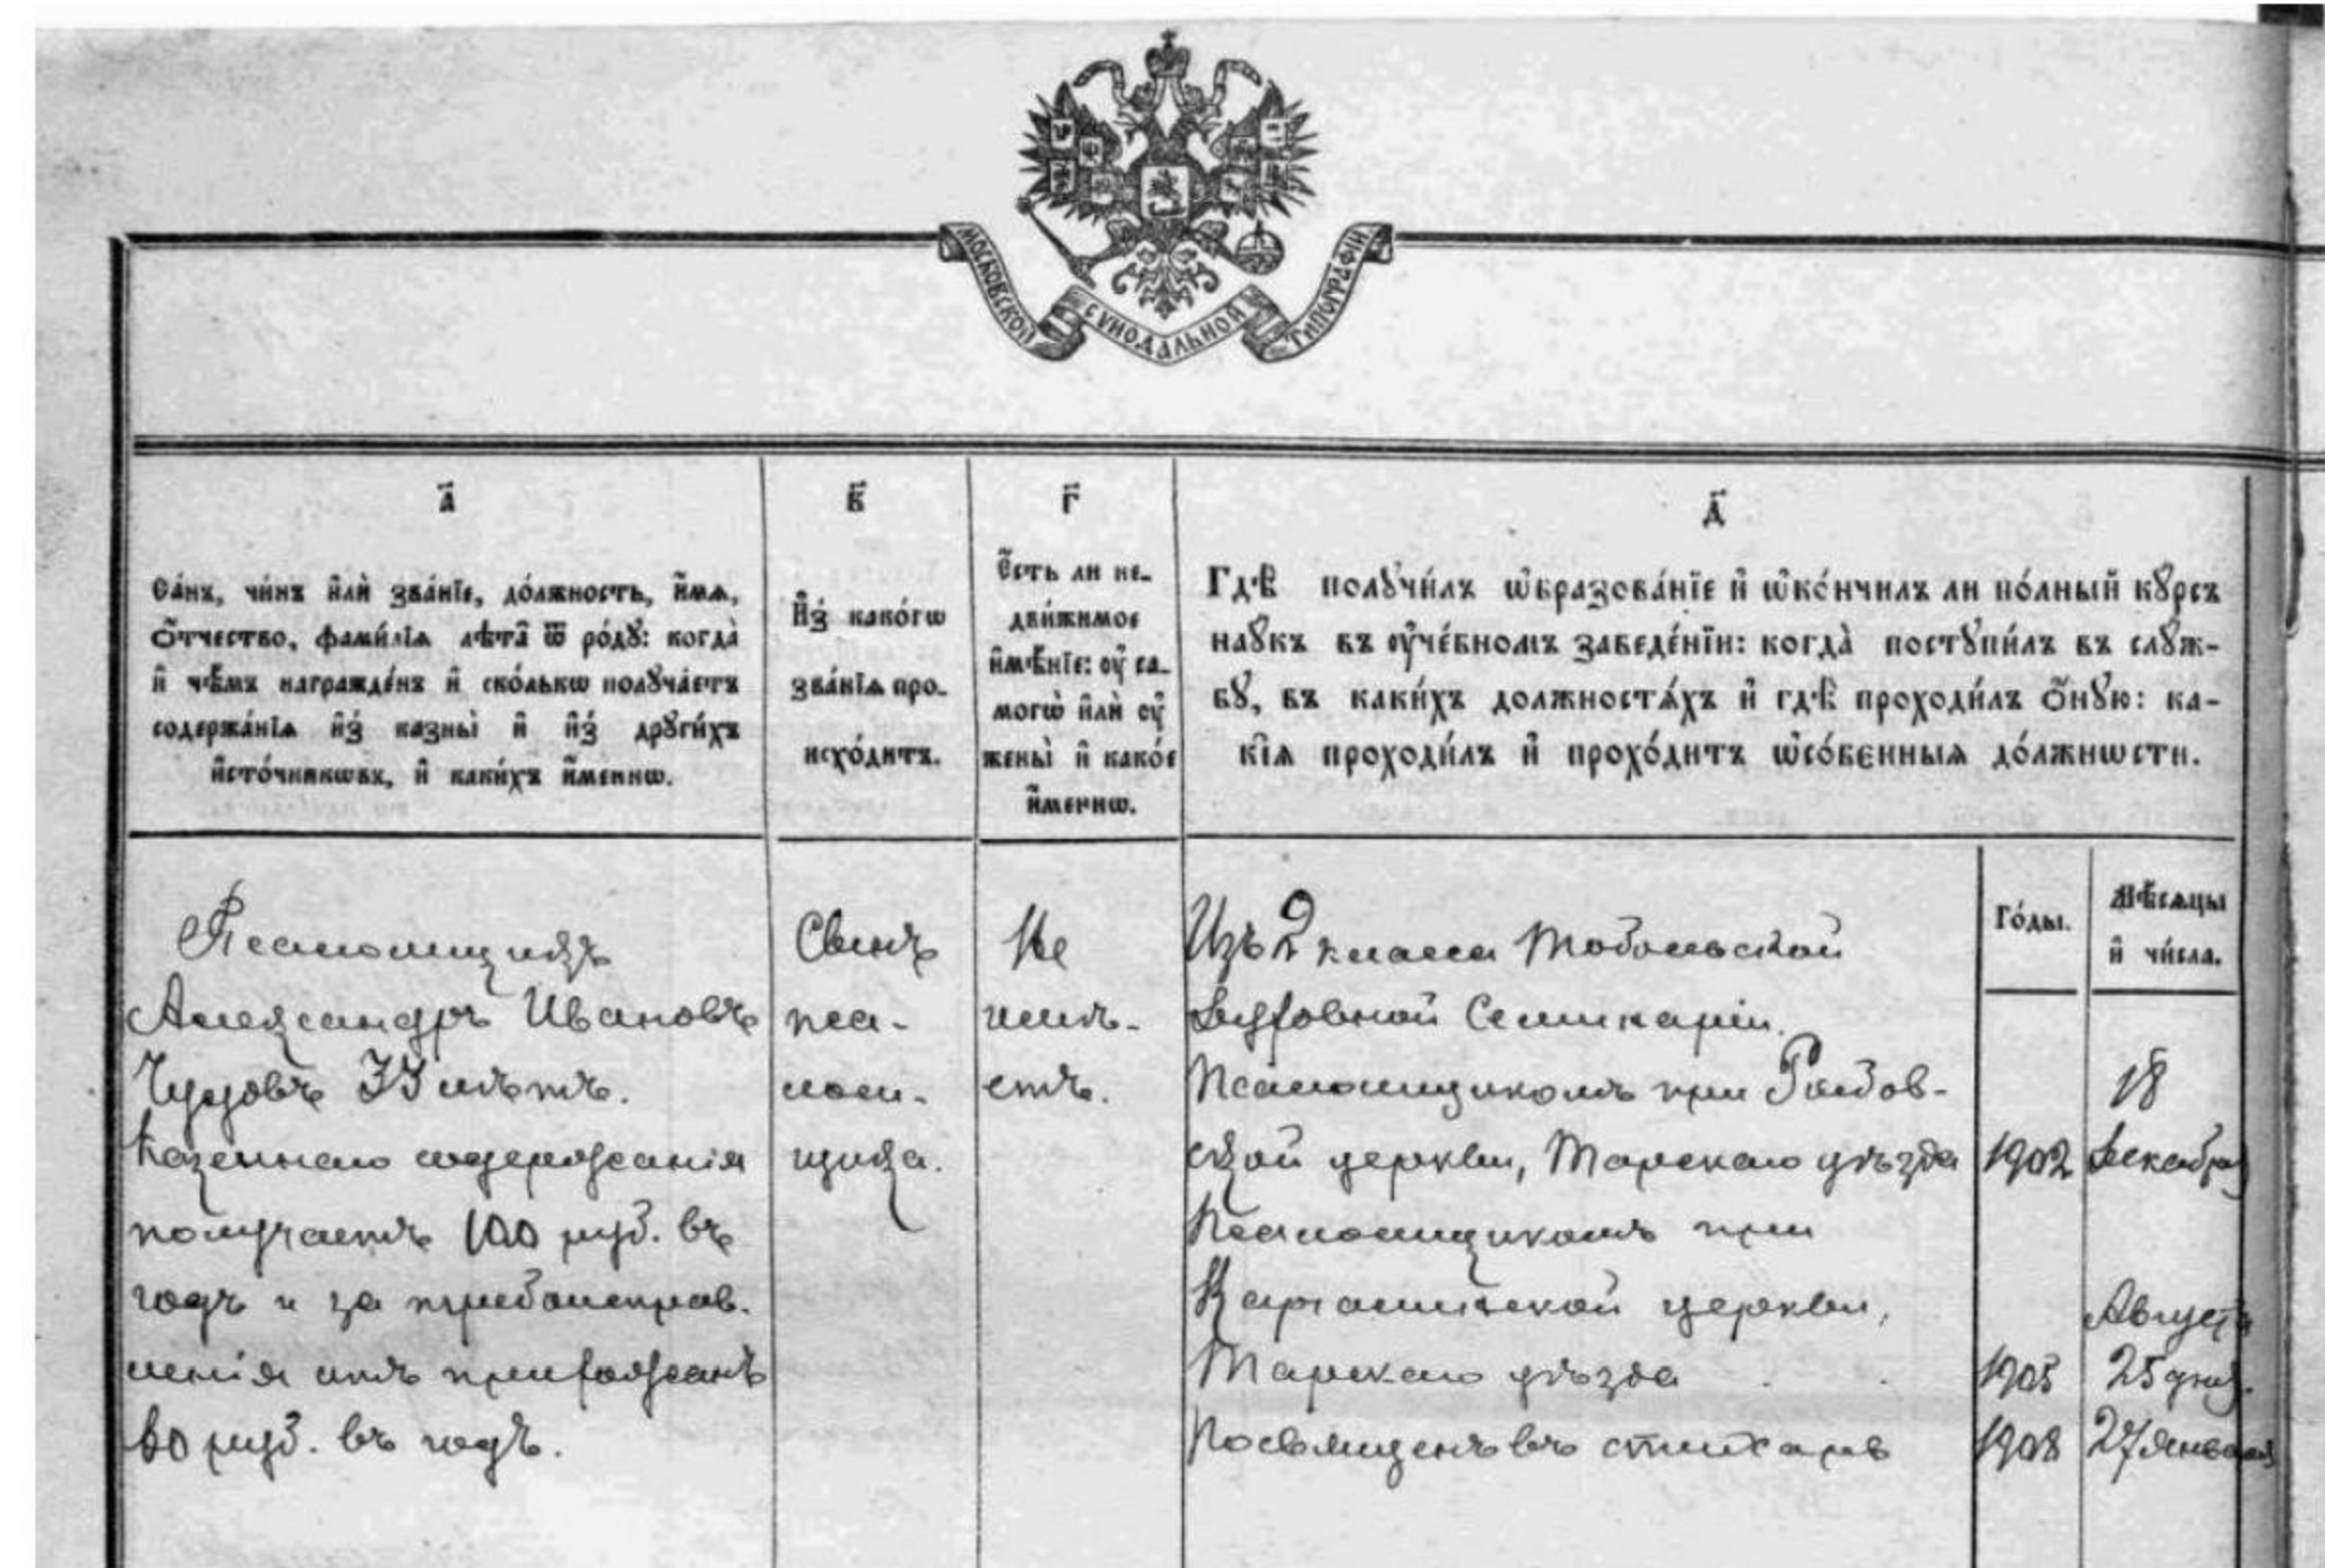 МОСКОВСКОЙ СѴНОДАЛЬНОЙ ТИПОГРАФІИ
а҃
Са́нъ, чи́нъ и҆лѝ зва́нїе, до́лжность, и҆́мѧ,
ѻ҆́тчество, фами́лїѧ лѣта̀ ѿ ро́дꙋ: когда̀
и҆ чѣ́мъ награжде́нъ и҆ ско́лькѡ полꙋча́етъ
содержа́нїѧ и҆з̾ казны̀ и҆ и҆з̾ дрꙋги́хъ
и҆сто́чникѡвъ, и҆ каки́хъ и҆́меннѡ.
в҃
И҆з̾ како́гѡ
зва́нїѧ про-
исхо́дитъ.
г҃
Є҆́сть ли не-
дви́жимое
и҆мѣ́нїе: ᲂу҆ са-
могѡ̀ и҆лѝ ᲂу҆
жены̀ и҆ како́е
и҆́меннѡ.
д҃
Гдѣ̀ полꙋчи́лъ ѡ҆бразова́нїе и҆ ѡ҆ко́нчилъ ли по́лный кꙋ́рсъ
наꙋ́къ въ ᲂу҆че́бномъ заведе́нїи: когда̀ постꙋпи́лъ въ слꙋ́ж-
бꙋ, въ каки́хъ должностѧ́хъ и҆ гдѣ̀ проходи́лъ ѻ҆́нꙋю: ка-
кі̑ѧ проходи́лъ и҆ прохо́дитъ ѡ҆со́бенныѧ до́лжнѡсти.
Го́ды.
Мѣ́сѧцы
и҆ чи́сла.
Псаломщикъ
Александръ Ивановъ
Чудовъ 33 лѣтъ.
Казеннаго содержанія
получаетъ 100 руб. въ
годъ и за требоисправ-
ленія отъ прихожанъ
60 руб. въ годъ.
Сынъ
пса-
лом-
щика.
Не
имѣ-
етъ.
Изъ 2 класса Тобольской
Духовной Семинаріи.
Псаломщикомъ при
ской церкви, Тарскаго уѣзда 1902 18 Декабря
Псаломщикомъ при
Карташевской церкви,
Тарскаго уѣзда . . 1905 Августа 25 дня.
Посвященъ въ стихарь 1908 27 Января